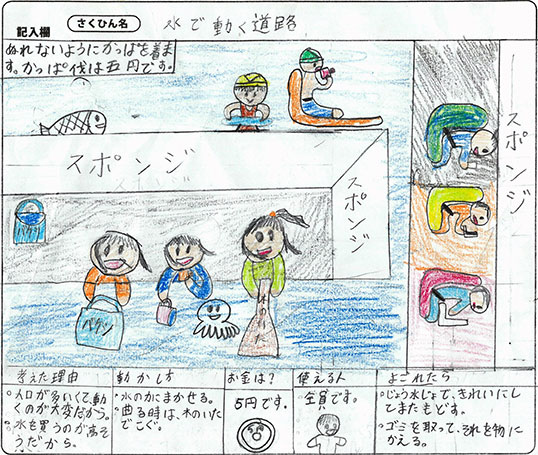 記入欄
さくひん名
水で動く道路
ぬれないようにかっぱを着ま
す。かっぱ代は五円です。
スポンジ
スポンジ
スポンジ
考えた理由
動かし方
お金は?
使える人
よごれたら
・人口が多いくて動
くのが大変だから。
・水を買うのがあそ
うだから。
・水の力にまかせる。
・曲る時は、木のいた
でこぐ。
5円です。
全員です。
・じょう水じょで、きれいにし
てまたもどす。
・ゴミを取って、それを物に
かえる。